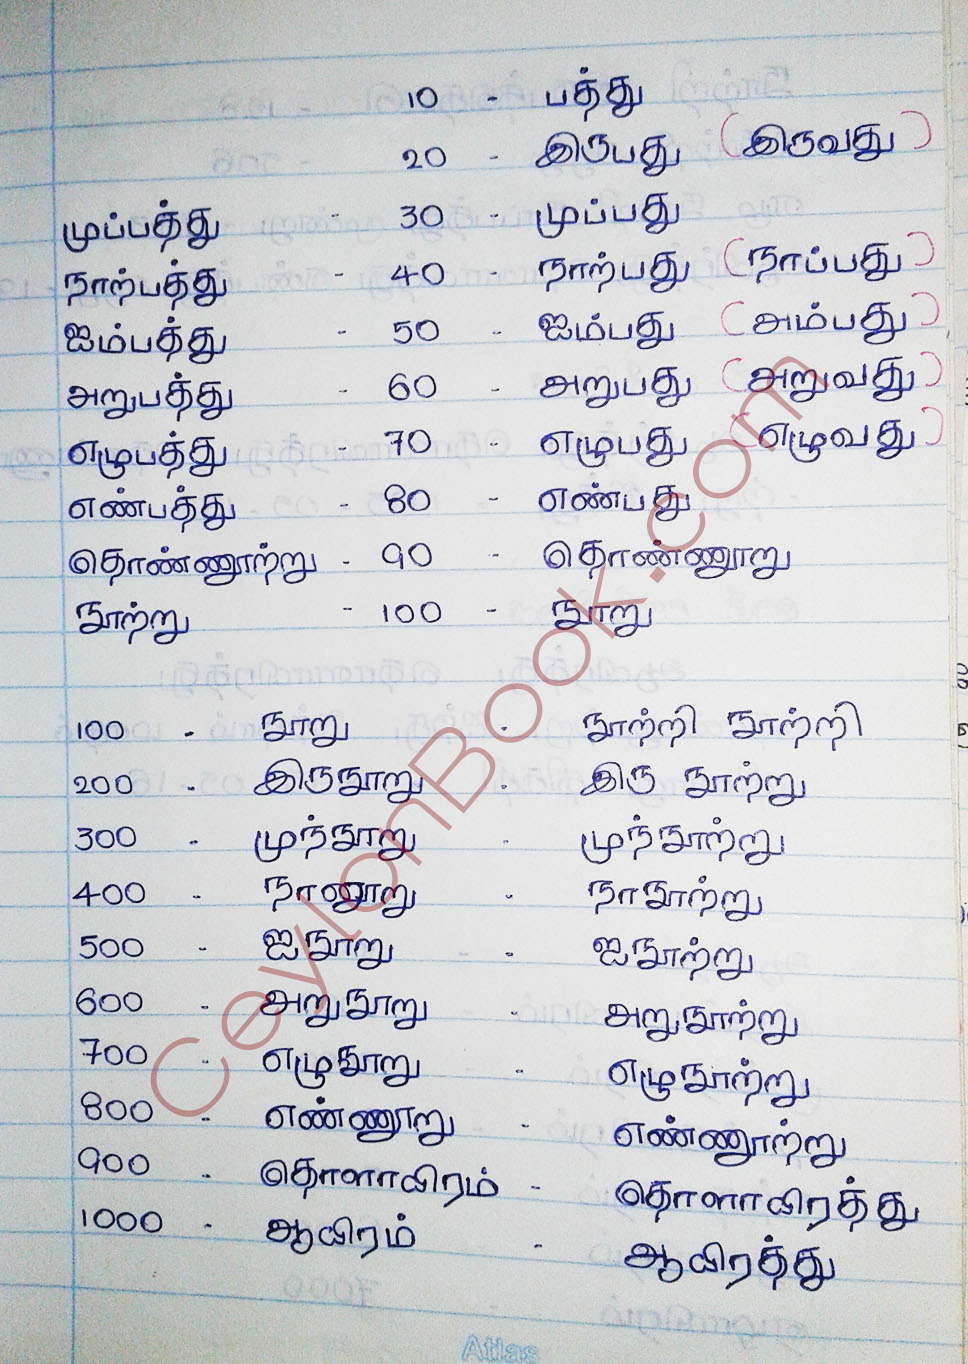 10 - பத்து
20 - இருபது (இருவது)
முப்பத்து - 30 - முப்பது
நாற்பத்து - 40 - நாற்பது (நாப்பது)
ஐம்பத்து - 50 - ஐம்பது (அம்பது)
அறுபத்து - 60 - அறுபது (அறுவது)
எழுபத்து - 70 - எழுபது (எழுவது)
எண்பத்து - 80 - எண்பது
தொண்ணூற்று - 90 - தொண்ணூறு
நூற்று - 100 - நூறு
100 - நூறு - நூற்றி நூற்றி
200 - இருநூறு - இரு நூற்று
300 - முந்நூறு - முந்நூற்று
400 - நானூறு - நாநூற்று
500 - ஐநூறு - - ஐநூற்று
600 - அறுநூறு - அறுநூற்று
700 - எழுநூறு - எழுநூற்று
800 - எண்ணூறு - எண்ணூற்று
900 - தொளாயிரம் - தொளாயிரத்து
1000 - ஆயிரம் - ஆயிரத்து
CeylonBook.com
Atlas